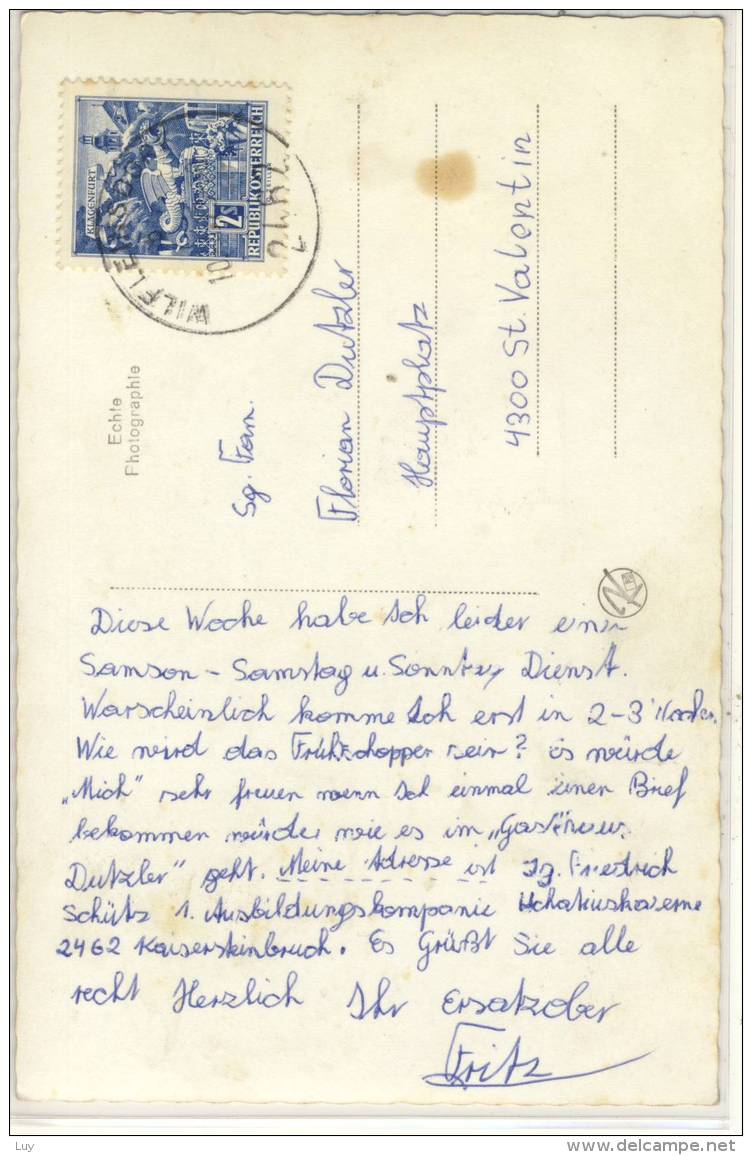 KLAGENFURT
2S
REPUBLIK ÖSTERREICH
Echte
Photographie
Sg. Fam.
Florian Dutzler
Hauptplatz
4300 St. Valentin
Diese Woche habe Ich leider einen
Samson - Samstag u. Sonntag Dienst.
Warscheinlich komme Ich erst in 2-3 Wochen.
Wie wird das Frühschoppen sein? Es würde
"Mich" sehr freuen wenn Ich einmal einen Brief
bekommen würde, wie es im "Gasthaus
Dutzler" geht. Meine Adresse ist Jg. Friedrich
Schütz 1. Ausbildungskompanie Uchatiuskaserne
2462 Kaisersteinbruch. Es Grüßt Sie alle
recht Herzlich Ihr Ersatzober
Fritz
Luy
delcampe.net